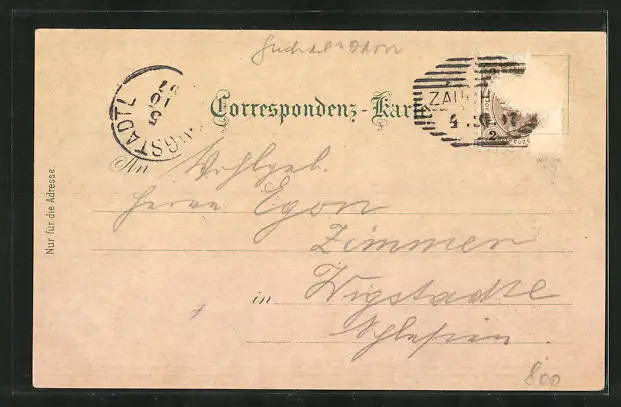 Correspondenz-Karte
ZAU
2
WIGSTADTL
5
10
97
An Wohlgeb.
Herrn Egon
Zimmer
in Wigstadtl
Schlesien
Nur für die Adresse.
800